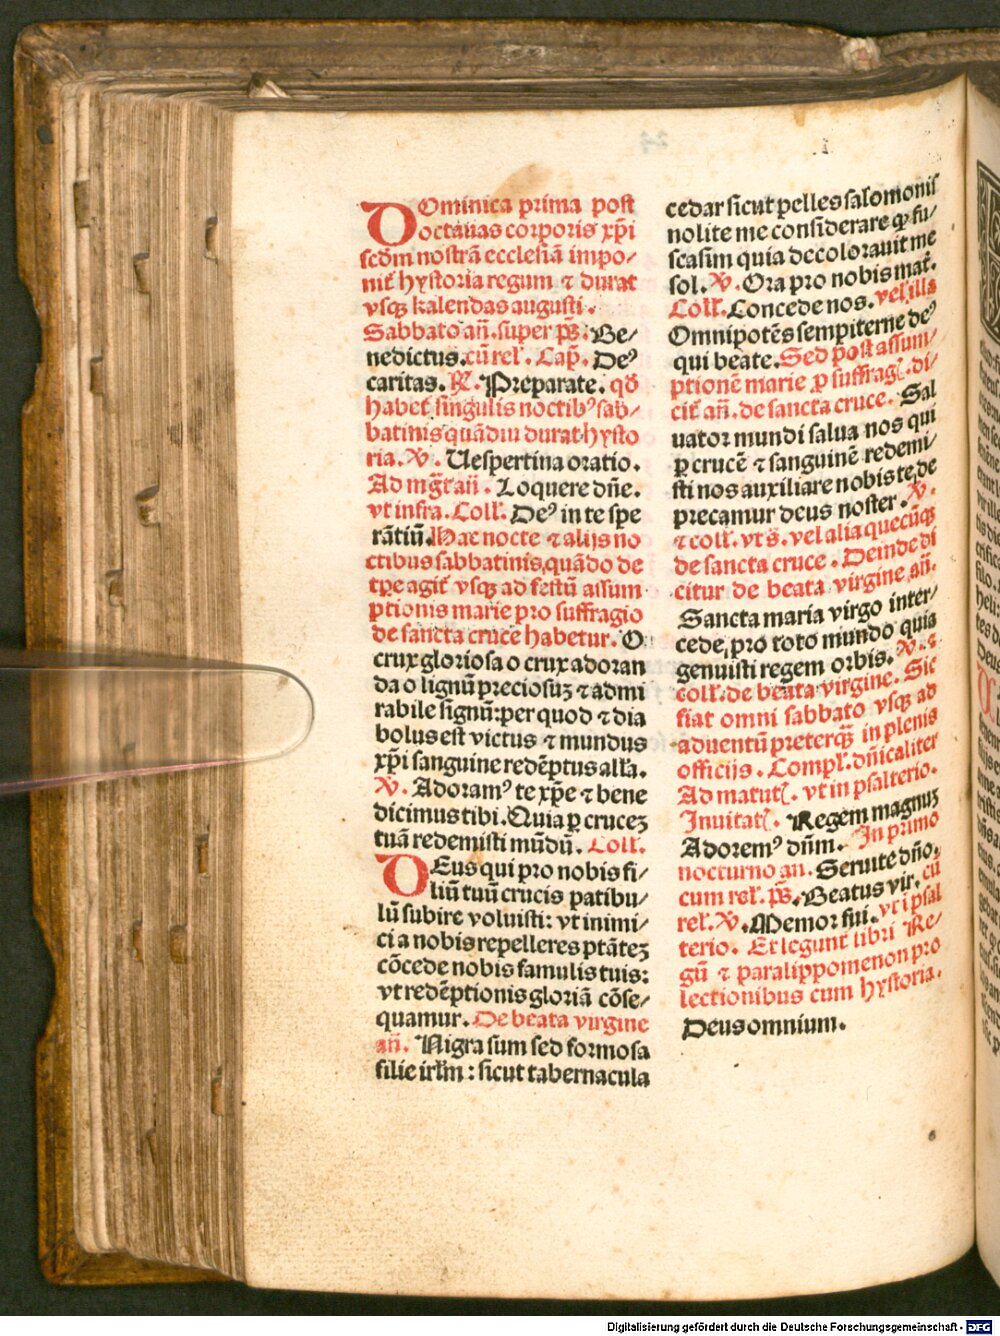 DOminica prima post
octauas corporis xp̄i
scdm̄ nostrā ecclesiā impo⸗
nit̄ hystoria regum ⁊ durat
vsqꝫ kalendas augusti.
Sabbato an̄. super ps̄. Be⸗
nedictus. cū rel̄. Cap̄. Deꝰ
caritas. ℟. Preparate. qđ
habet̄ singulis noctibꝰ sab⸗
batinis quādiu durat hysto
ria. ℣. Uespertina oratio.
Ad mḡt an̄. Loquere dn̄e.
vt infra. Coll̄. Deꝰ in te spe
rātiū. Hac nocte ⁊ alijs no
ctibus sabbatinis, quādo de
tp̄e agit̄ vsqꝫ ad festū assum
ptionis marie pro suffragio
de sancta cruce habetur. O
crux gloriosa o crux adoran
da o lignū preciosuꝫ ⁊ admi
rabile signū: per quod ⁊ dia
bolus est victus ⁊ mundus
xp̄i sanguine redēptus all̄a.
℣. Adoramꝰ te xp̄e ⁊ bene
dicimus tibi. Quia ꝑ cruceꝫ
tuā redemisti mūdū. Coll̄.
DEus qui pro nobis fi⸗
liū tuū crucis patibu⸗
lū subire voluisti: vt inimi⸗
ci a nobis repelleres ptāteꝫ
cōcede nobis famulis tuis:
vt redēptionis gloriā cōse⸗
quamur. De beata virgine
an̄. Nigra sum sed formosa
filie irl̄m: sicut tabernacula
cedar sicut pelles salomonis
nolite me considerare ꝙ fu⸗
sca sim quia decolorauit me
sol. ℣. Ora pro nobis mat̄.
Coll̄. Concede nos. vel illa
Omnipotēs sempiterne deꝰ
qui beate. Sed post assum⸗
ptionē marie ꝓ suffraḡ. di⸗
cit̄ an̄. de sancta cruce. Sal
uator mundi salua nos qui
ꝑ crucē ⁊ sanguinē redemi⸗
sti nos auxiliare nobis te, de
precamur deus noster. ℣.
⁊ coll̄. vt s̄. vel alia quecūqꝫ
de sancta cruce. Deinde di
citur de beata virgine an̄.
Sancta maria virgo inter⸗
cede, pro toto mundo quia
genuisti regem orbis. ℣. ⁊
coll̄. de beata virgine. Sic
fiat omni sabbato vsqꝫ ad
aduentū preterqꝫ̄ in plenis
officijs. Compl̄. dn̄icaliter
Ad matut̄. vt in psalterio.
Inuitat̄. Regem magnuꝫ
Adoremꝰ dn̄m. In primo
nocturno an̄. Seruite dn̄o.
cum rel̄. ps̄. Beatus vir. cū
rel̄. ℣. Memor fui. vt ī psal
terio. Et legunt̄ libri Re⸗
gū ⁊ paralippomenon pro
lectionibus cum hystoria.
Deus omnium.
Digitalisierung gefördert durch die Deutsche Forschungsgemeinschaft - DFG